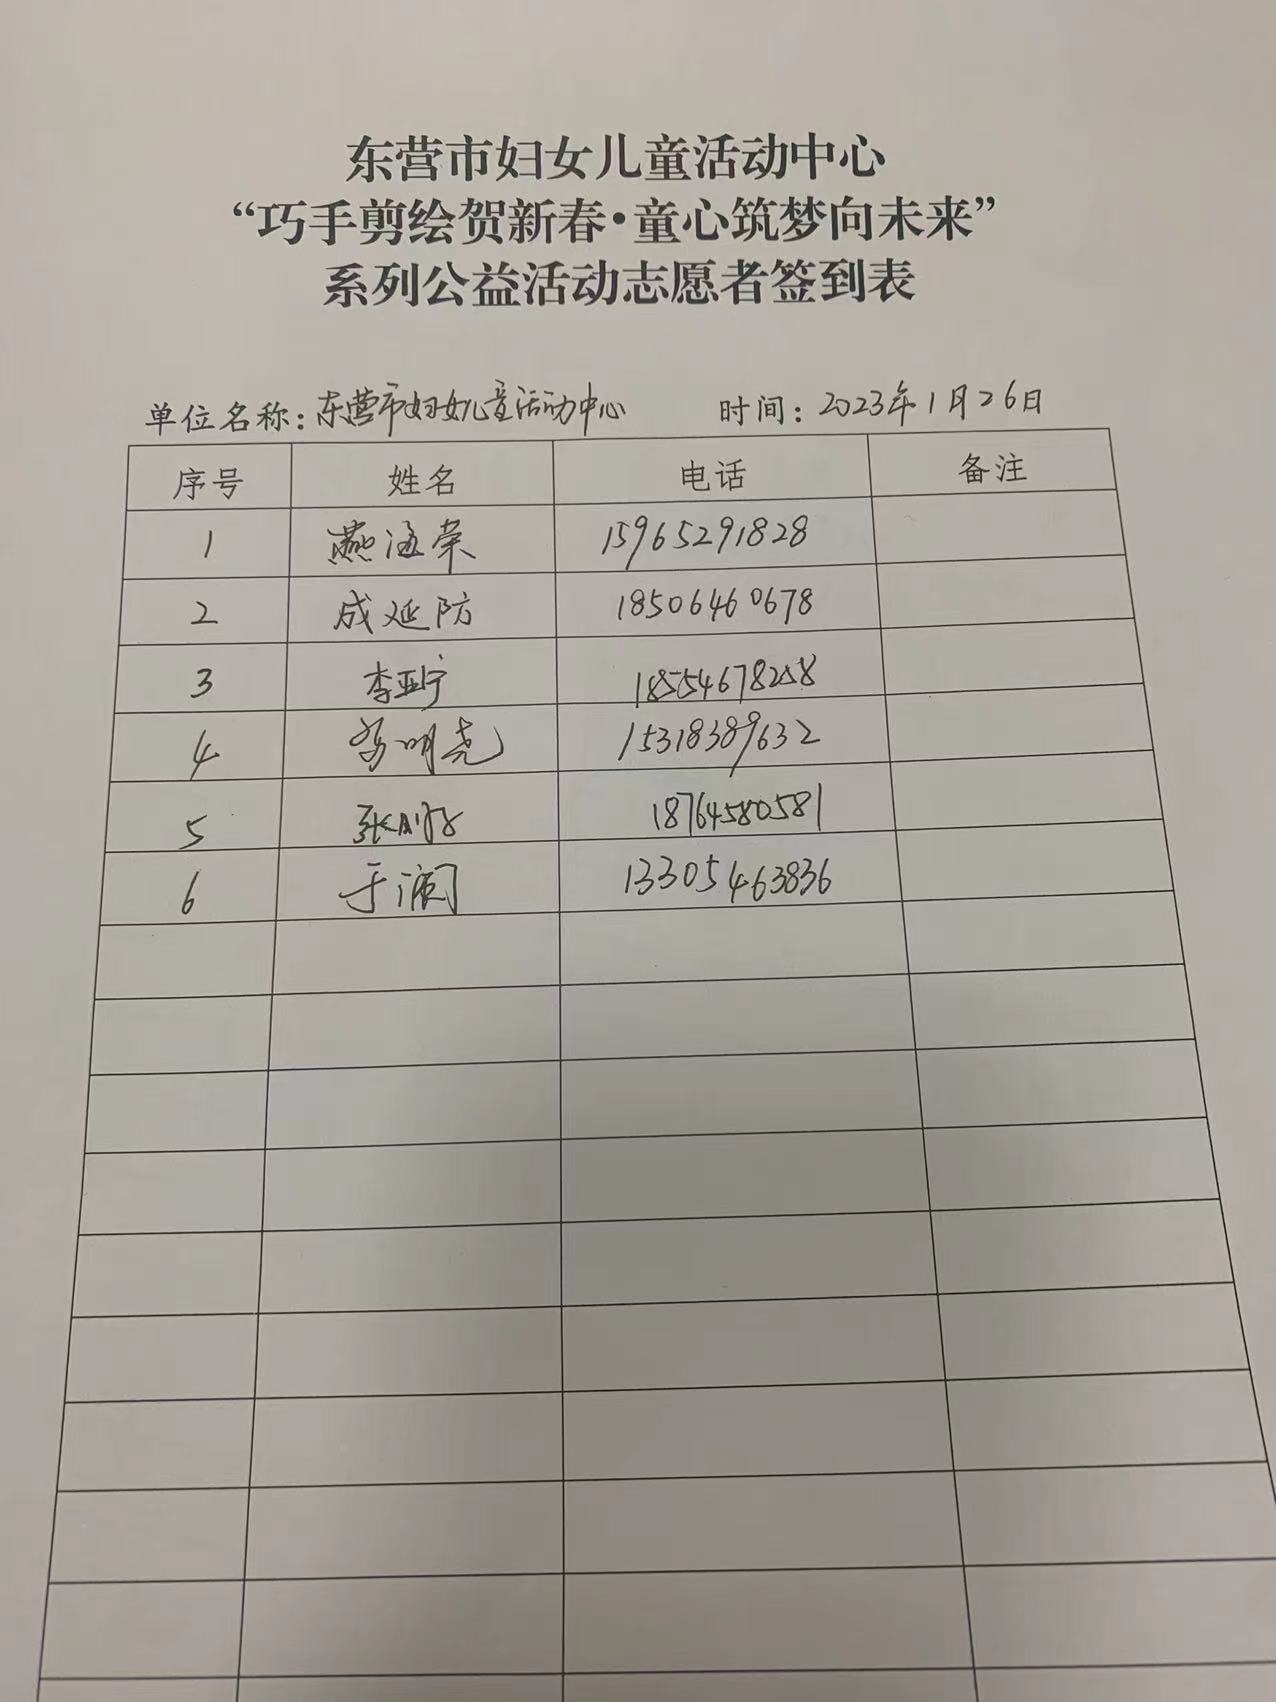 东营市妇女儿童活动中心
“巧手剪绘贺新春·童心筑梦向未来”
系列公益活动志愿者签到表
单位名称：东营市妇女儿童活动中心 时间：2023年1月26日
序号 姓名 电话 备注
1 燕海荣 15965291828
2 成延防 18506460678
3 李亚宁 18554678258
4 明尧 15318389632
5 张 18764580581
6 于 13305463836